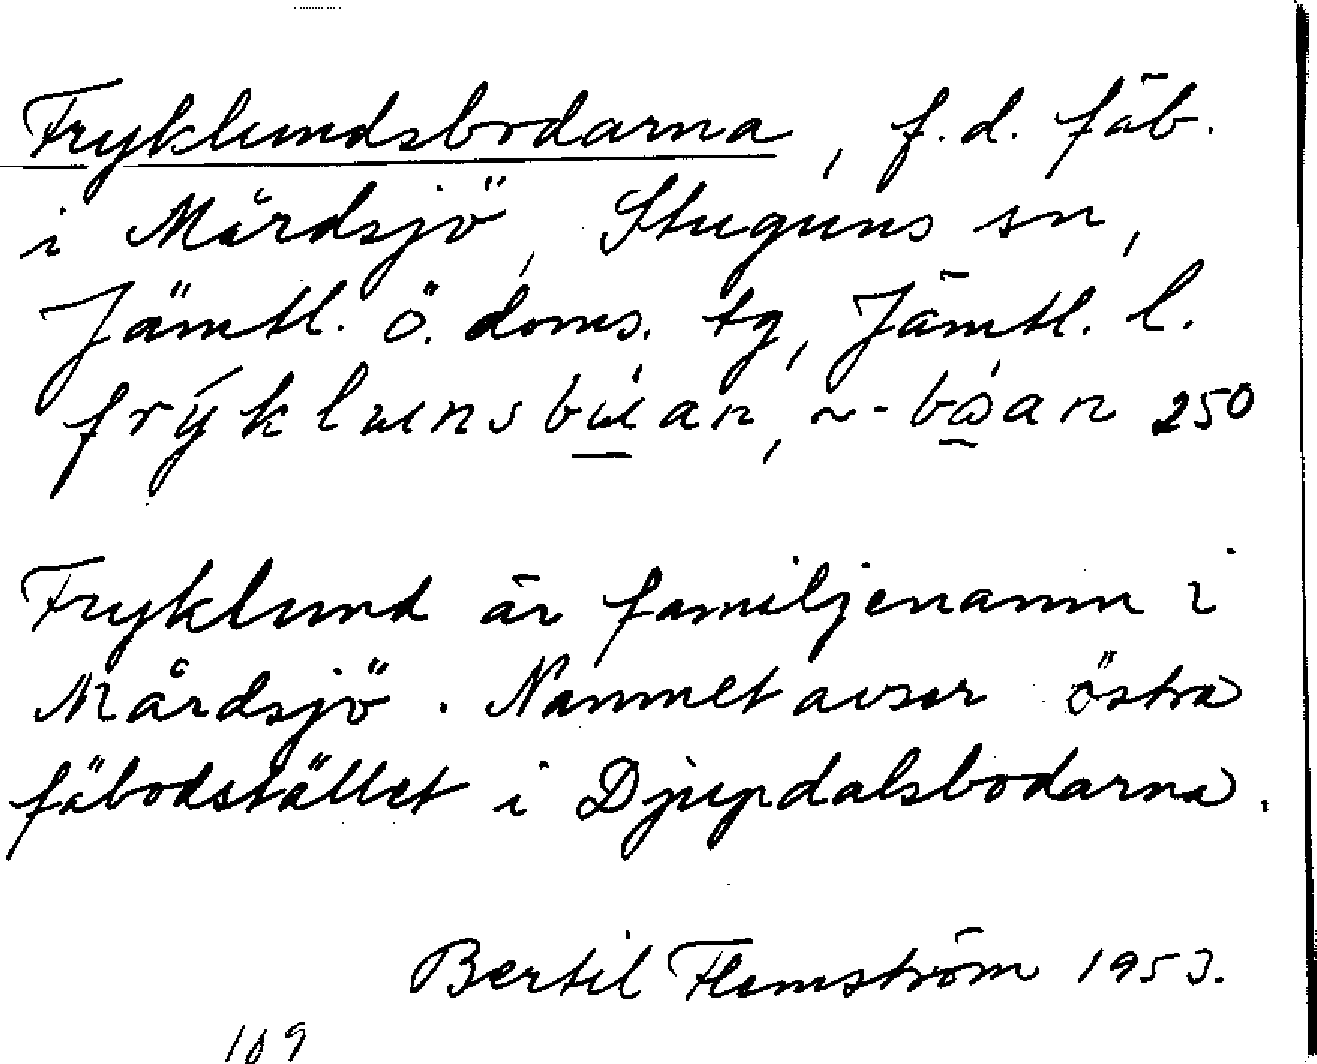 Fryklundsbodarna, f.d. fäb.
i Mårdsjö, Stuguns sn,
Jämtl. ö. doms. tg, Jämtl. l.
250
Fryklund är familjenamn i
Mårdsjö. Namnet avser östra
fäbodstället i Djupdalsbodarna.
Bertil Flemström 1953.
109